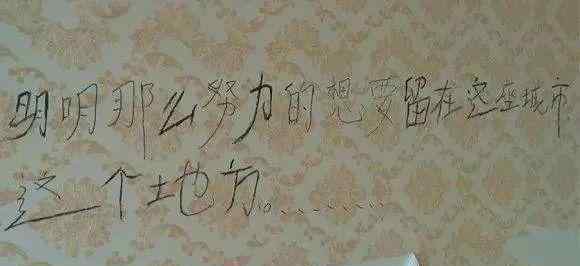 明明那么努力的想要留在这座城市
这个土地方。………